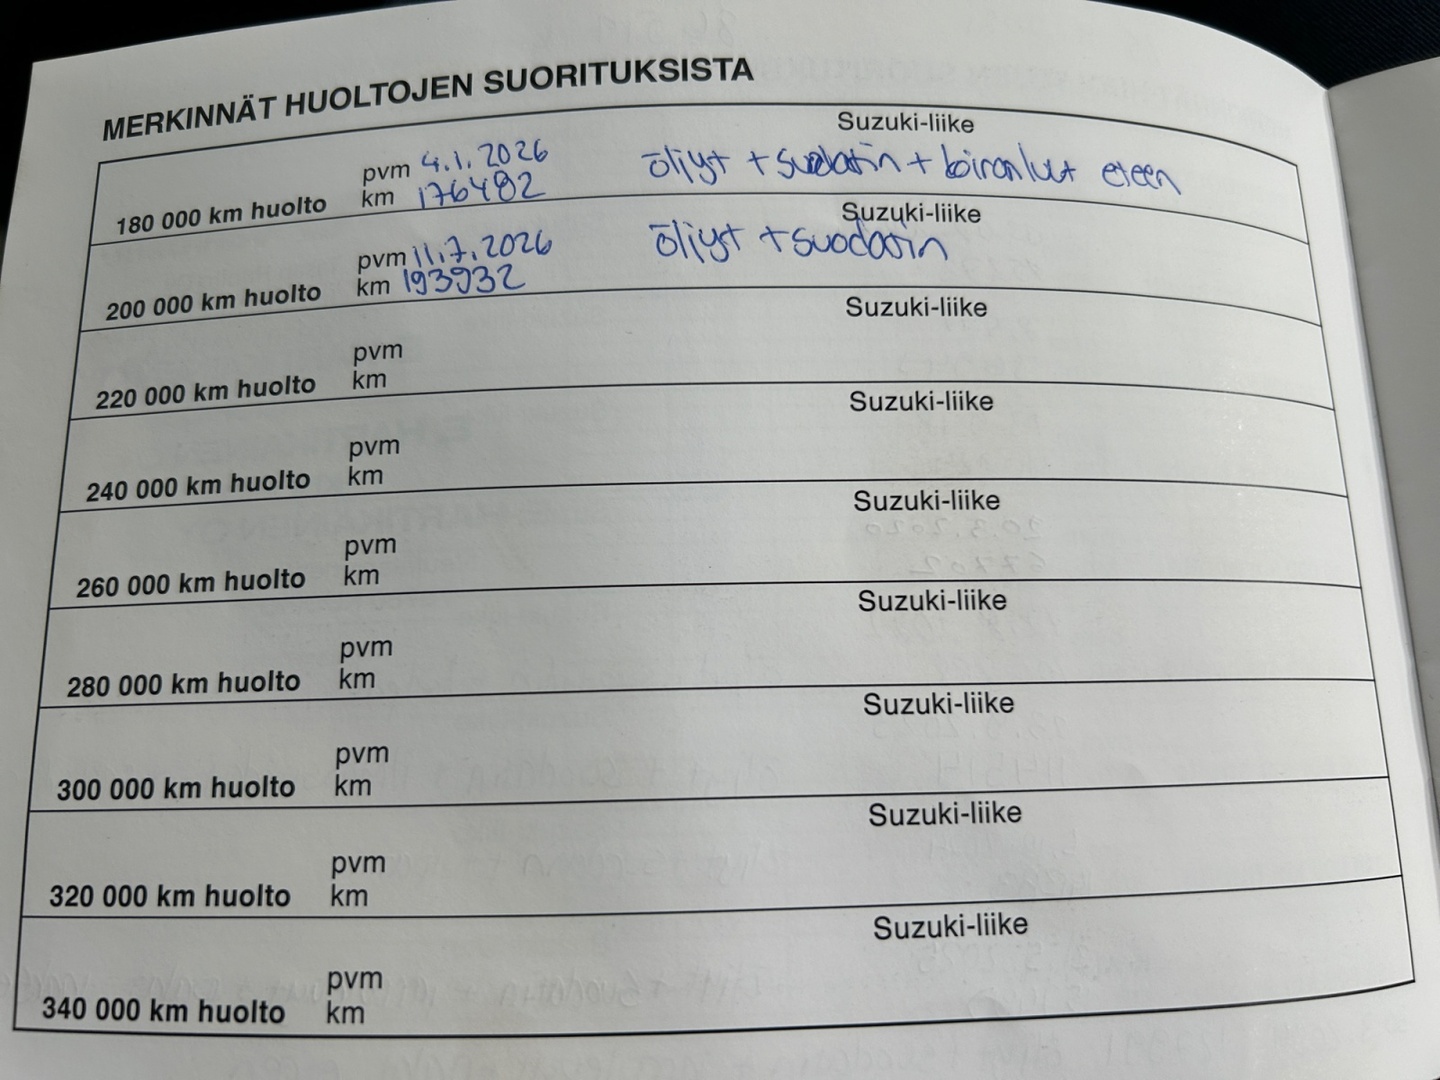 MERKINNÄT HUOLTOJEN SUORITUKSISTA
Suzuki-liike
pvm 4.1.2026 öljyt + suodatin + koiranluut eteen
180 000 km huolto km 176482
Suzuki-liike
pvm 11.7.2026 öljyt + suodatin
200 000 km huolto km 193932
Suzuki-liike
pvm
220 000 km huolto km
Suzuki-liike
pvm
240 000 km huolto km
Suzuki-liike
pvm
260 000 km huolto km
Suzuki-liike
pvm
280 000 km huolto km
Suzuki-liike
pvm
300 000 km huolto km
Suzuki-liike
pvm
320 000 km huolto km
Suzuki-liike
pvm
340 000 km huolto km